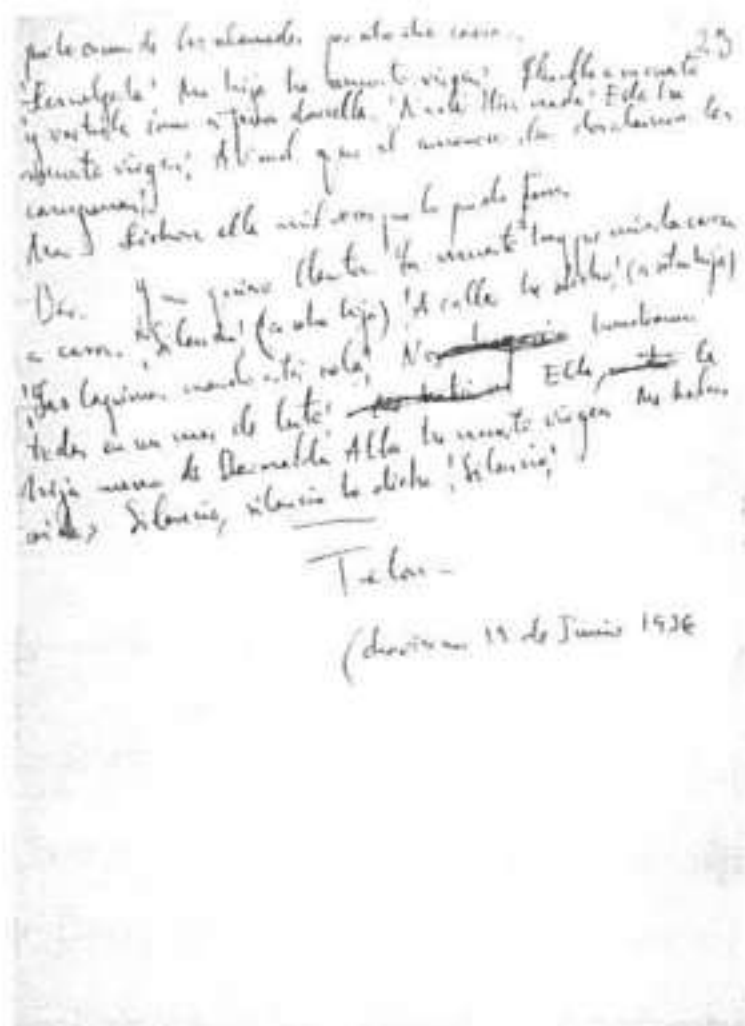 23
por lo oscuro de las alamedas pero otro día caerás.
¡Descolgarla! Mi hija ha muerto virgen! Llevadla a su cuarto
y vestirla como si fuera doncella. ¡Nadie dirá nada! Ella ha
muerto virgen! Avisad que al amanecer den dos clamores las
campanas!
Mar Dichosa ella mil veces que lo pudo tener.
Ber. Y no quiero llantos. La muerte hay que mirarla cara
a cara. ¡Silencio! (a otra hija) ¡A callar he dicho! (a otra hija)
¡Las lágrimas cuando estés sola! Nos hundiremos
todas en un mar de luto. Ella, la
hija menor de Bernarda Alba ha muerto virgen Me habéis
oido? Silencio, silencio he dicho ¡Silencio!
Telon-
19 de Junio 1936